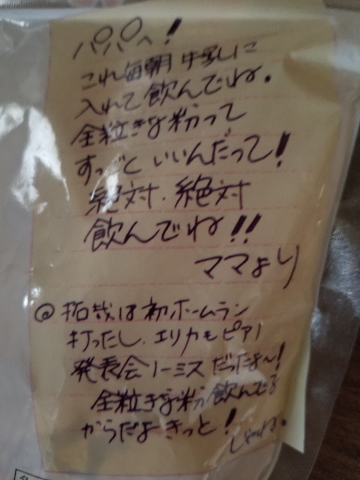 パパへ!
これ毎朝牛乳に
入れて飲んでね。
全粒きな粉って
すっごくいいんだって!
絶対、絶対
飲んでね!!
ママより
@拓哉は初ホームラン
打ったし、エリカもピアノ
発表会ノーミスだったよ〜!
全粒きな粉飲んでる
からだよきっと!
じゃね。